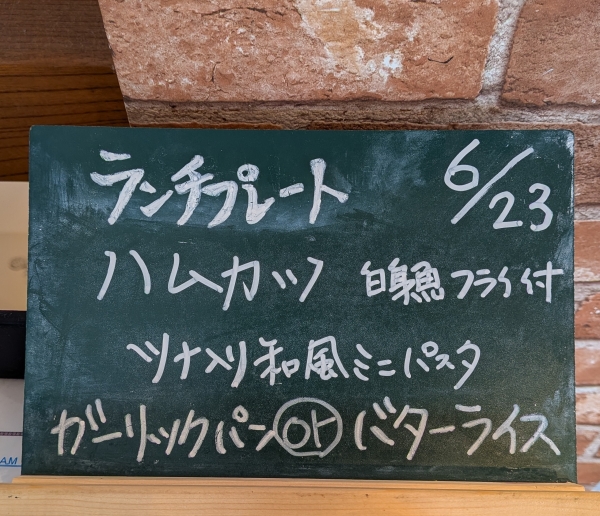 ランチプレート 6/23
ハムカツ 白身魚フライ付
ツナ入り和風ミニパスタ
ガーリックパン or バターライス
AM